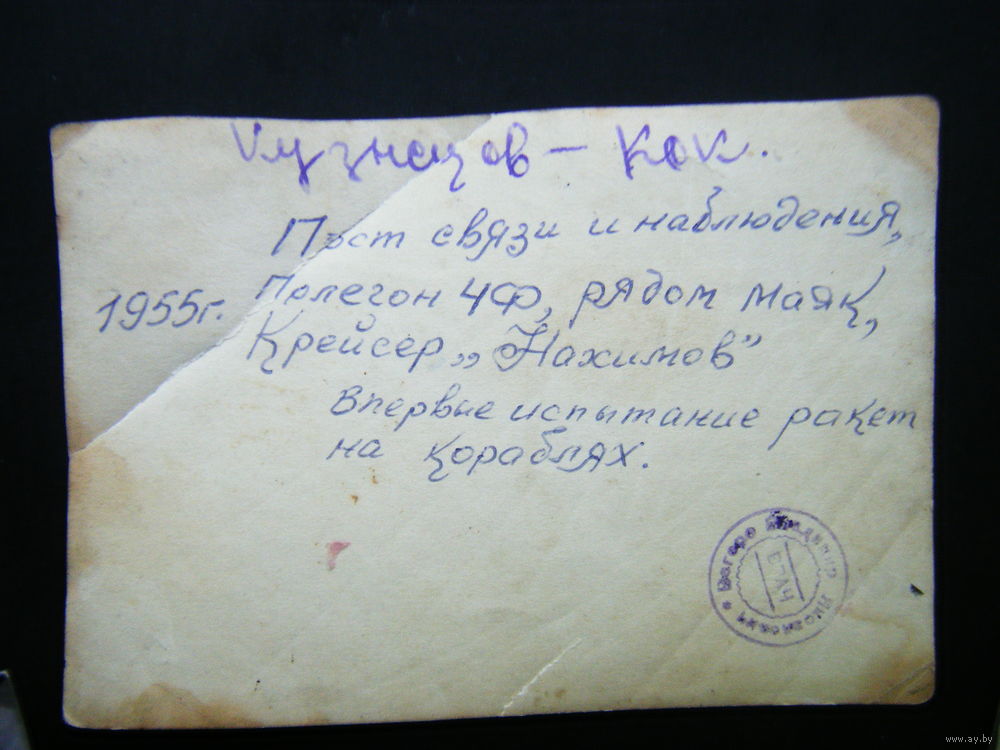 Кузнецов - кок.
Пост связи и наблюдения,
1955г. Полегон ЧФ, рядом маяк,
Крейсер „Нахимов"
Впервые испытание ракет
на кораблях.
ВРАЧ
www.ay.by